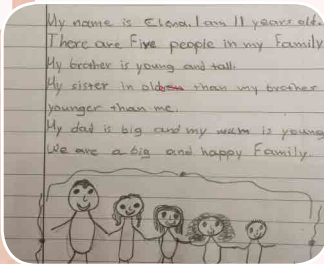 My name is Elena. I am 11 years old.
There are Five people in my Family
My brother is young and tall.
My sister in older than my brother
younger than me.
My dad is big and my mum is young
We are a big and happy Family.